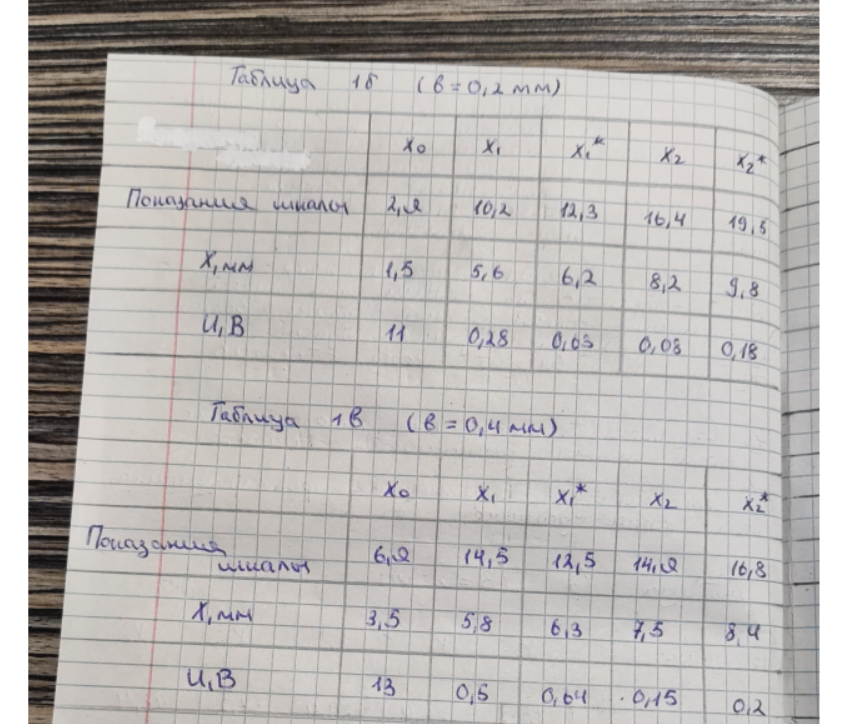 Таблица 1б (в = 0,2 мм)
X₀ X₁ X₁* X₂ X₂*
Показания шкалы 2,9 10,2 12,3 16,4 19,5
X, мм 1,5 5,6 6,2 8,2 9,8
U, В 11 0,28 0,63 0,08 0,18
Таблица 1в (в = 0,4 мм)
X₀ X₁ X₁* X₂ X₂*
Показания
шкалы 6,9 14,5 12,5 14,9 16,8
X, мм 3,5 5,8 6,3 7,5 8,4
U, В 13 0,5 0,64 0,15 0,2